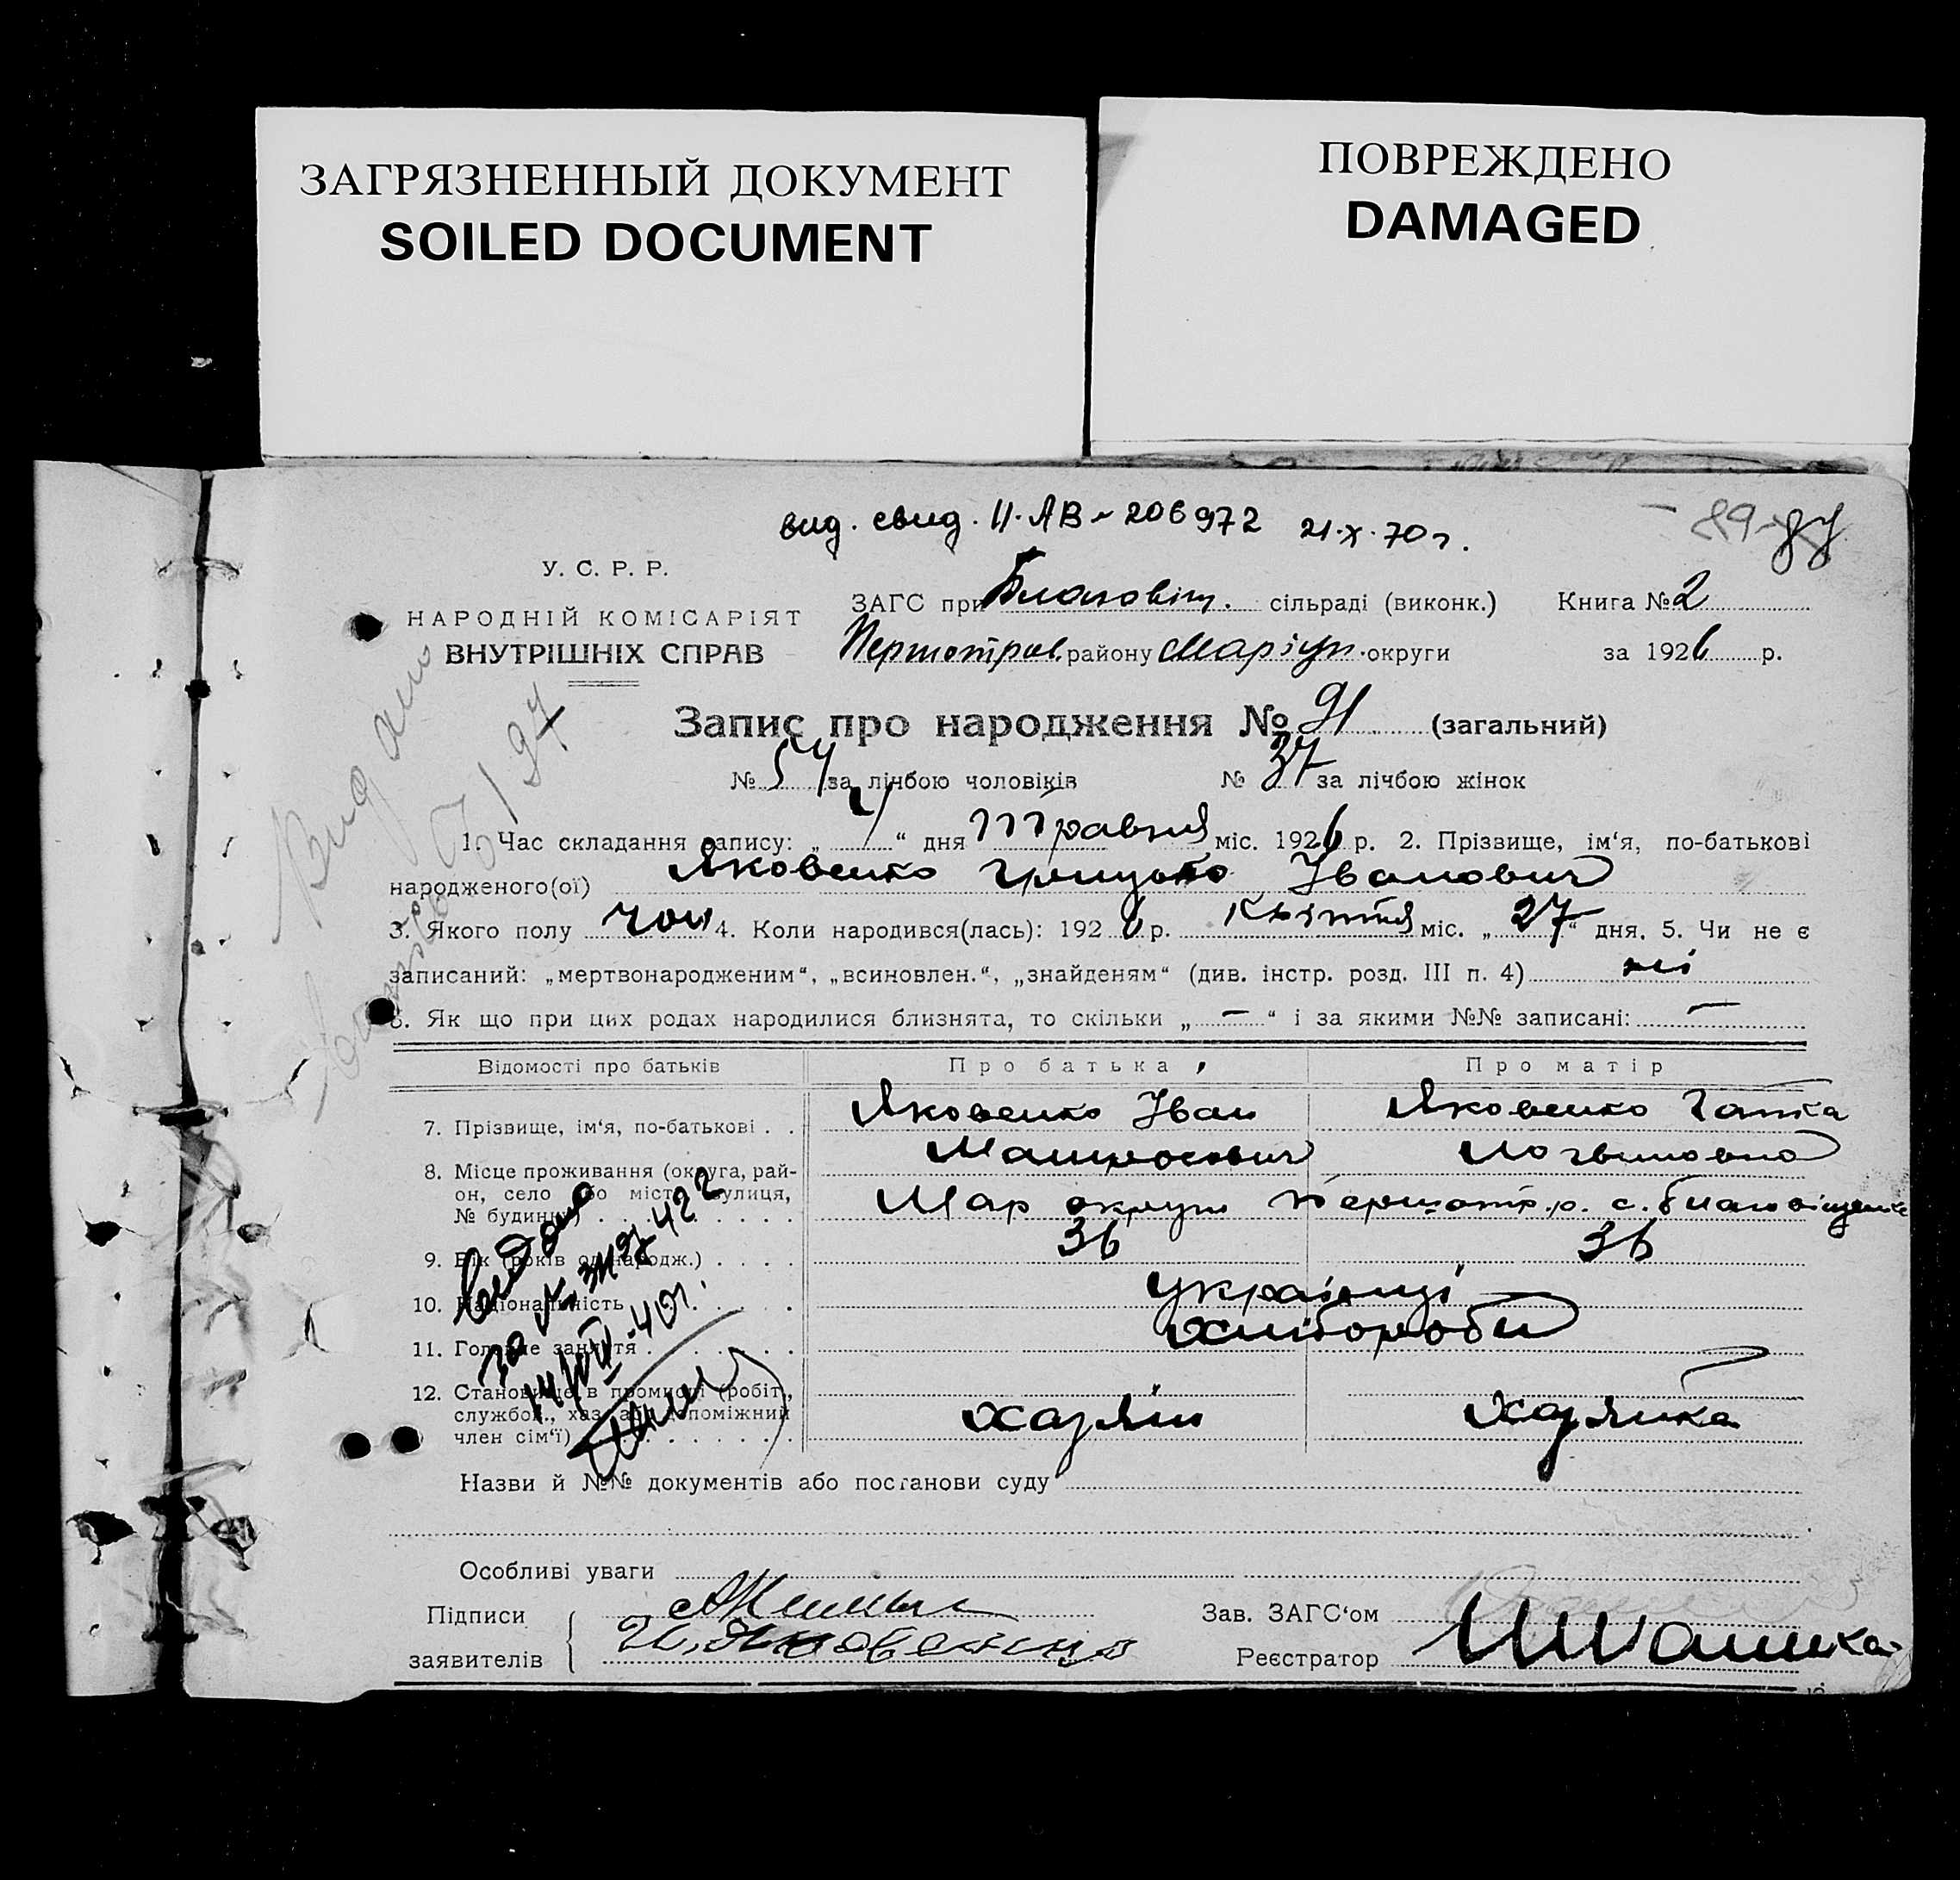 ЗАГРЯЗНЕННЫЙ ДОКУМЕНТ
SOILED DOCUMENT
ПОВРЕЖДЕНО
DAMAGED
вид. свид. II-АВ № 206972 21.X.70 г.
У. С. Р. Р.
НАРОДНІЙ КОМІСАРІЯТ
ВНУТРІШНІХ СПРАВ
ЗАГС при Благовіщ. сільраді (виконк.) Книга № 2
Першотрав. району Маріуп. округи за 1926 р.
Запис про народження № 91 (загальний)
№ 54 за лічбою чоловіків № 37 за лічбою жінок
1. Час складання запису: „4“ дня Травня міс. 1926 р. 2. Прізвище, ім‘я, по-батькові
народженого(ої) Яковенко Грицько Іванович
3. Якого полу чол 4. Коли народився(лась): 1926 р. Квітня міс. „27“ дня. 5. Чи не є
записаний: „мертвонародженим“, „всиновлен.“, „знайденям“ (див. інстр. розд. III п. 4) ні
6. Як що при цих родах народилися близнята, то скільки „—“ і за якими №№ записані: —
Відомості про батьків Про батька Про матір
7. Прізвище, ім‘я, по-батькові . . Яковенко Іван Яковенко Гапка
Логвиновна
8. Місце проживання (округа, рай-
он, село або місто, вулиця, Мар округи Першотр. р. с. Благовіщенка
№ будинку) . . . . . . . . .
9. Вік (років од народж.) . . . . 36 36
10. Національність . . . . . . українці
11. Головне заняття . . . . . . хлібороби
12. Становище в промислі (робіт.,
службов., хаз. або допоміжний хазяїн хазяйка
член сім‘ї) . . . . . . . . .
Видано
Назви й №№ документів або постанови суду
Особливі уваги
Підписи
заявителів И. Яковенко
Зав. ЗАГС‘ом
Реєстратор